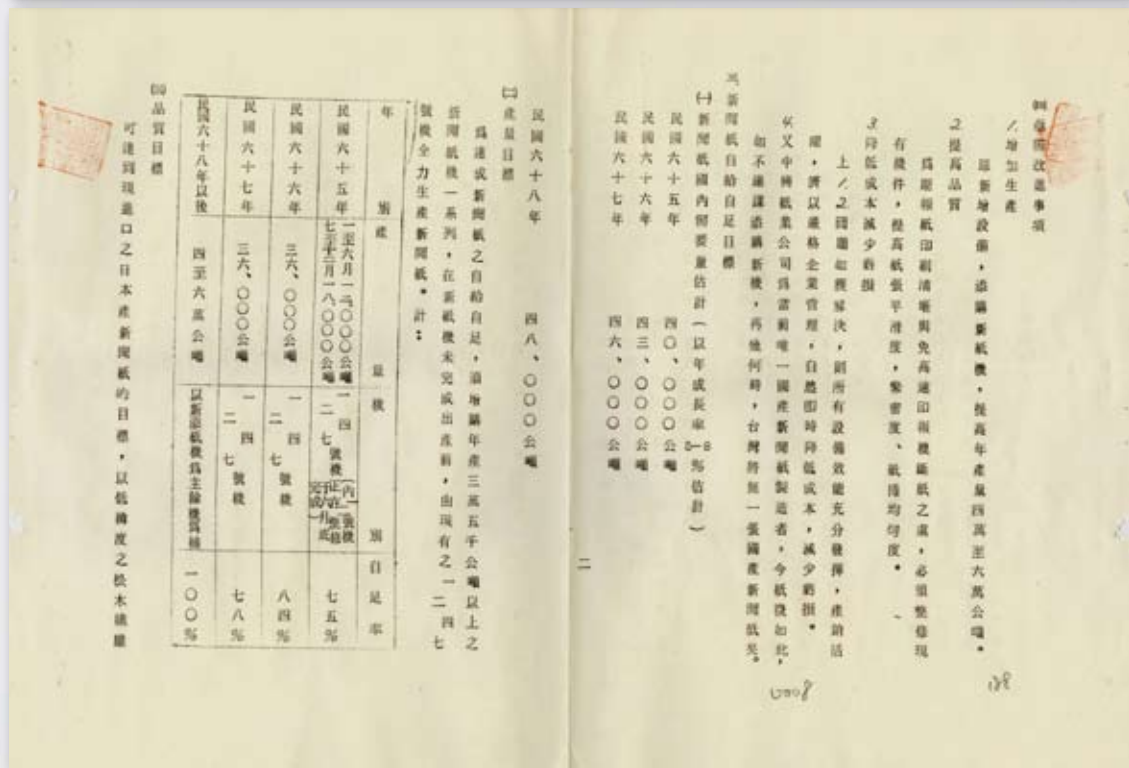 ㈣急需改進事項
1.增加生產
即新增設備,添購新紙機,提高年產量四萬至六萬公噸。
2.提高品質
為謀報紙印刷清晰與免高速印報機斷紙之虞,必須整修現
有機件,提高紙張平滑度,緊密度、紙捲均勻度。
3.降低成本減少虧損
上1.2.問題如獲解決,則所有設備效能充分發揮,產銷活
躍,濟以嚴格企業管理,自應即時降低成本,減少虧損。
4.又中興紙業公司為當前唯一國產新聞紙製造者,今紙機如此,
如不速謀添購新機,再幾何時,台灣將無一張國產新聞紙矣。
三、新聞紙自給自足目標
㈠新聞紙國內需要量估計(以年成長率5–8%估計)
民國六十五年 四〇、〇〇〇公噸
民國六十六年 四三、〇〇〇公噸
民國六十七年 四六、〇〇〇公噸
二
民國六十八年 四八、〇〇〇公噸
㈡產量目標
為達成新聞紙之自給自足,須增購年產三萬五千公噸以上之
新聞紙機一系列,在新紙機未完成出產前,由現有之一二四七
號機全力生產新聞紙。計:
年別 產量 機別 自足率
民國六十五年 一至六月一二、〇〇〇公噸 七至十二月一八、〇〇〇公噸 一二四七號機(內一號機正在整修于六月底完成) 七五%
民國六十六年 三六、〇〇〇公噸 一二四七號機 八四%
民國六十七年 三六、〇〇〇公噸 一二四七號機 七八%
民國六十八年以後 四至六萬公噸 以新添紙機為主除機為補 一〇〇%
㈢品質目標
可達到現進口之日本產新聞紙的目標,以低濃度之松木磺酸
0008
188